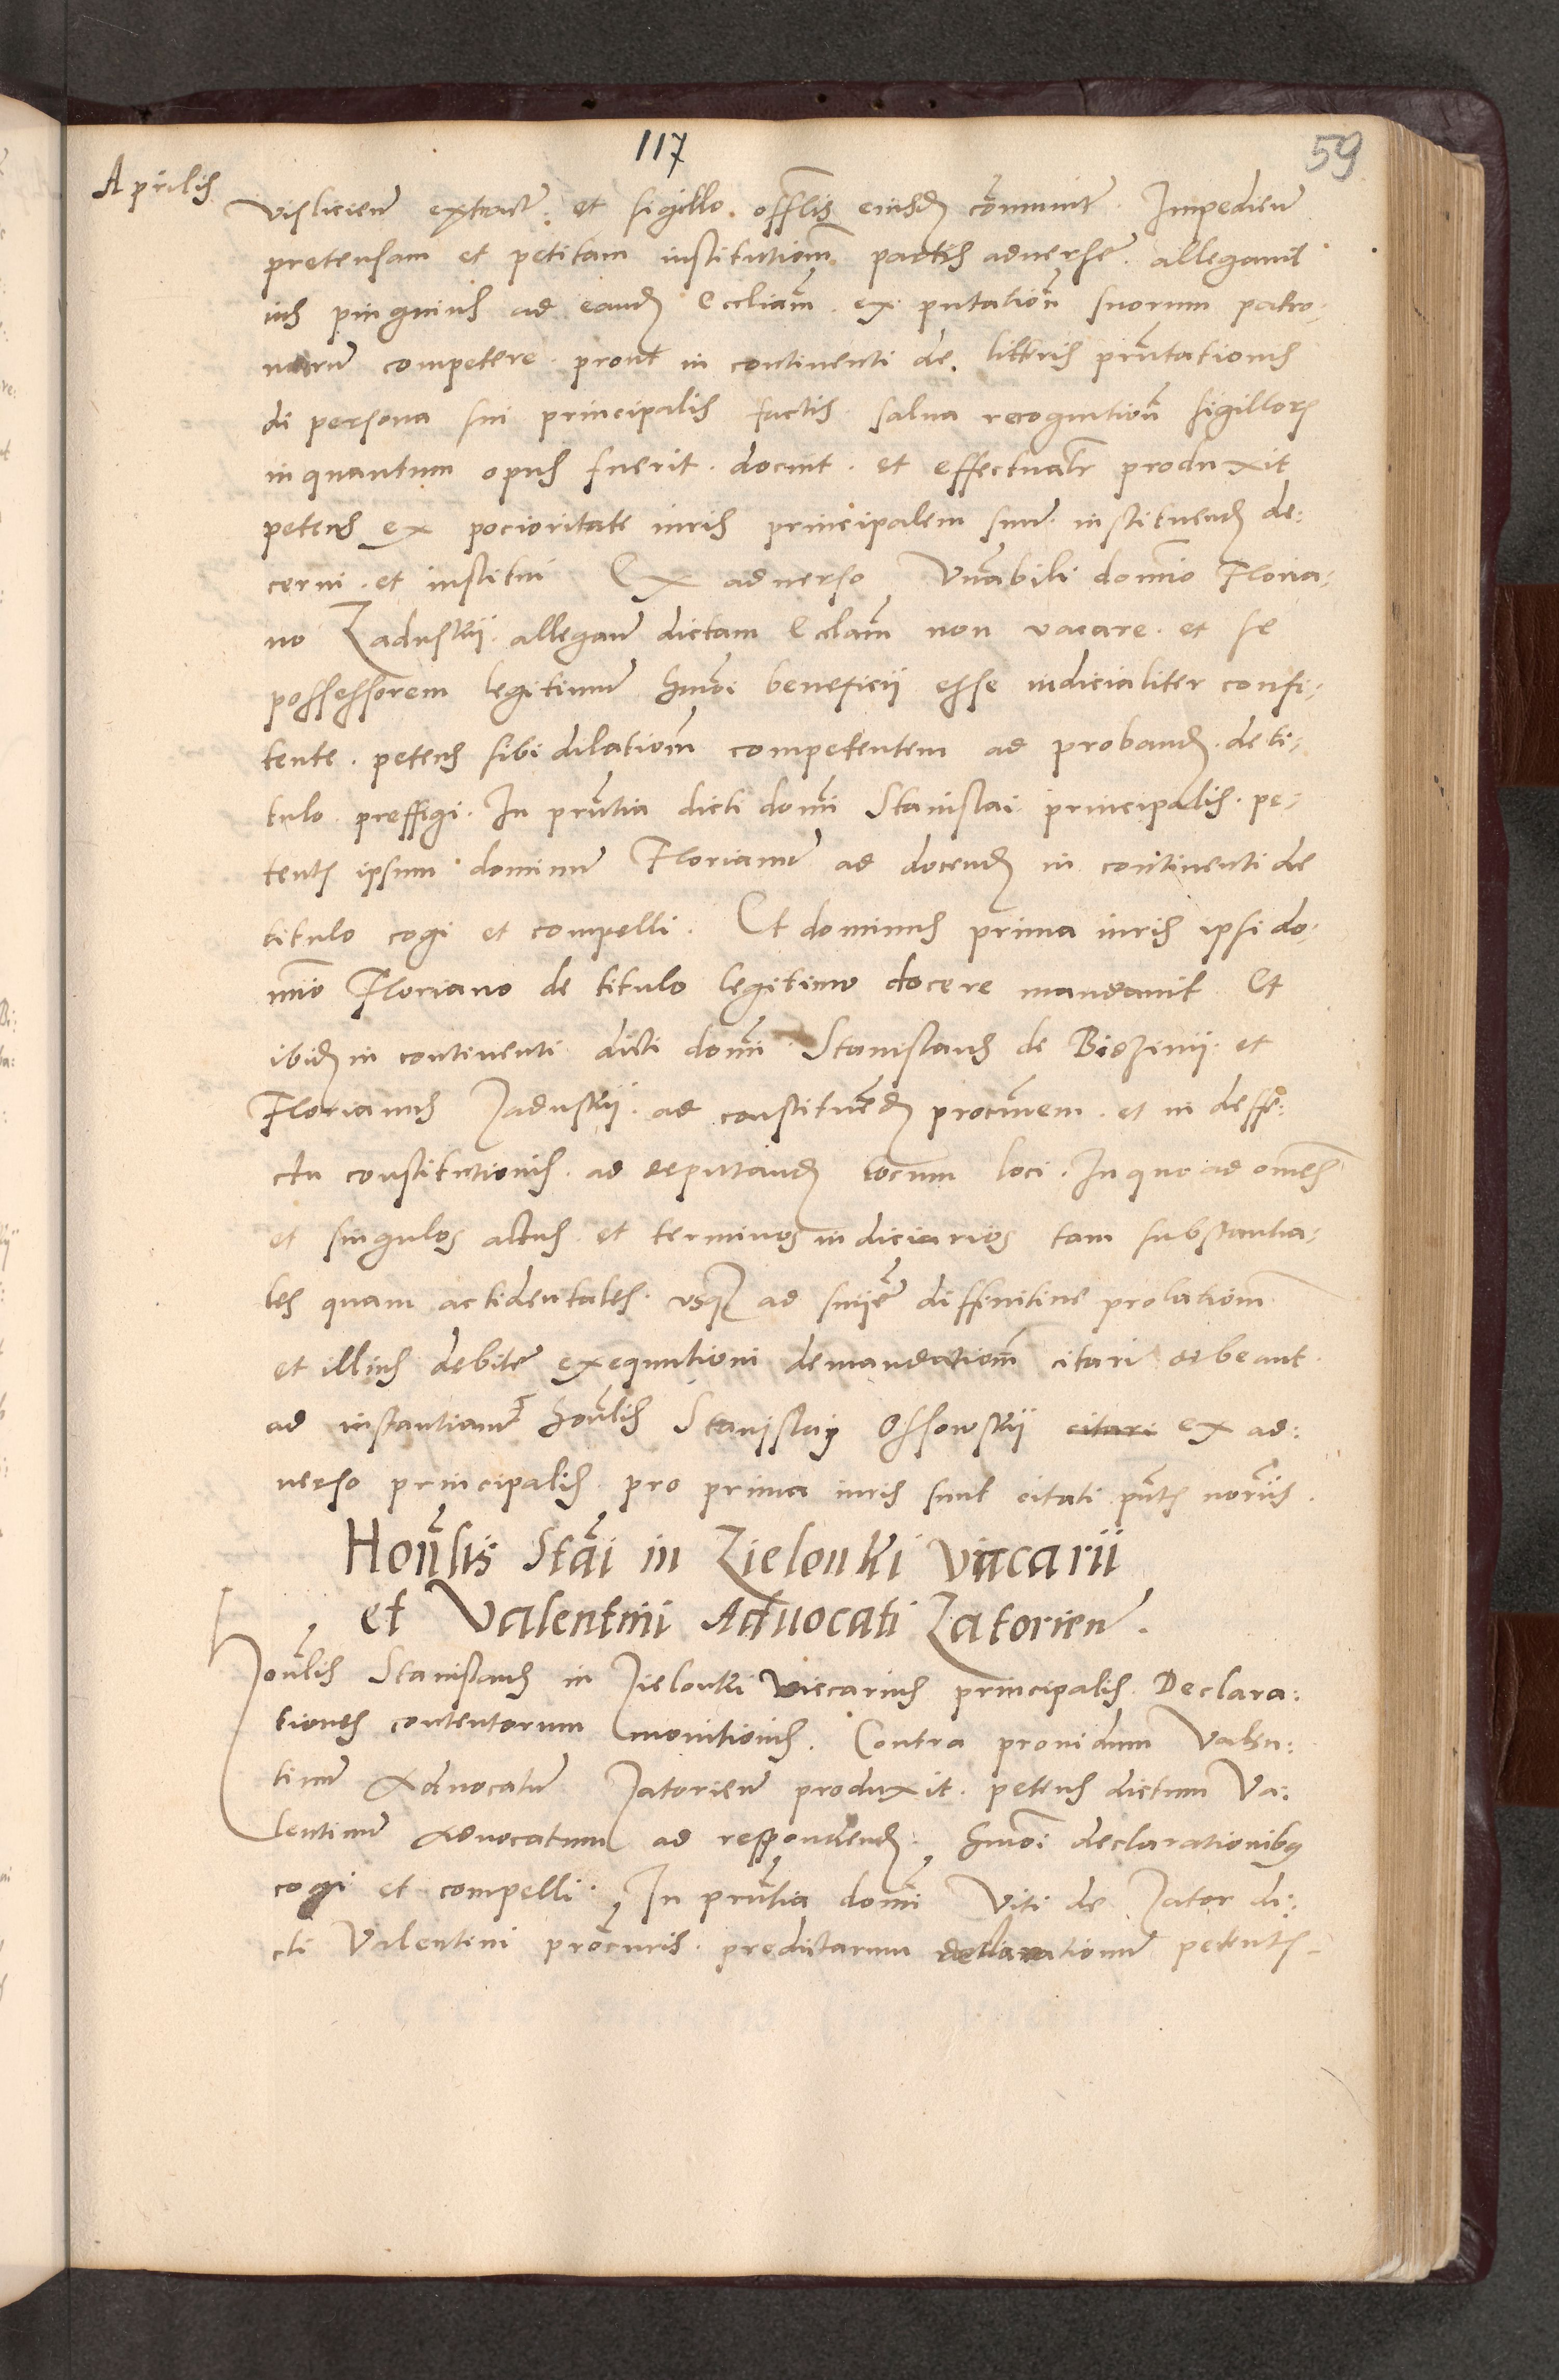 117
59
Aprilis
Vislicien extract et sigillo offlis eiusd comunit Impedien
pretensam et petitam institutiom partis adverse allegavit
ius pinguius ad eand Eccliam ex pntation suorum patro-
norum competere prout in continenti de littris pntationis
de persona sui principalis factis salva recognition sigillor
in quantum opus fuerit docuit et effectualr produxit
petens ex pocioritate iuris principalem suum instituend de:
cerni et institui Ex adverso Vnabili domino Floria-
no Zadustkii allegan dictam Ecclam non vacare et se
possessorem legitimum hmoi beneficii esse iudicialiter confi-
tente petens sibi dilatiom competentem ad proband de ti-
tulo preffigi In pntia dicti domni Stanislai principalis pe-
tents ipsum dominum Florianum ad docend in continenti de
titulo cogi et compelli Et dominus prima iuris ipsi do-
mio Floriano de titulo legitimo docere mandavit Et
ibid in continenti dicti domni Stanislaus de Biezinii et
Florianus Zadustkii ad constituend procuratorem et in deffe-
ctu constitutionis ad deputand locum loci In quo ad omnes
et singulos actus et terminos iudiciarios tam substantia-
les quam actidentales usq ad snie diffinitive prolatiom
et illius debite exequutioni demandatiom citari debeant
ad instantiam honlis Stanislay Ossowskii citari ex ad:
verso principalis pro prima iuris sunt citati pnts noriis
Honlis Stai in Zielonki vicarii
et Valentini Advocati Zatorien
Honlis Stanislaus in Zielonki viccarius principalis Declara:
tiones contentorum monitionis Contra providum Valen:
tinum Advocatum Zatorien produxit petens dictum Va:
lentinum Advocatum ad respondend hmoi declarationibus
cogi et compelli In pntia domni Viti de Zator di:
cti Valentini procuris predictarum declarationum petents